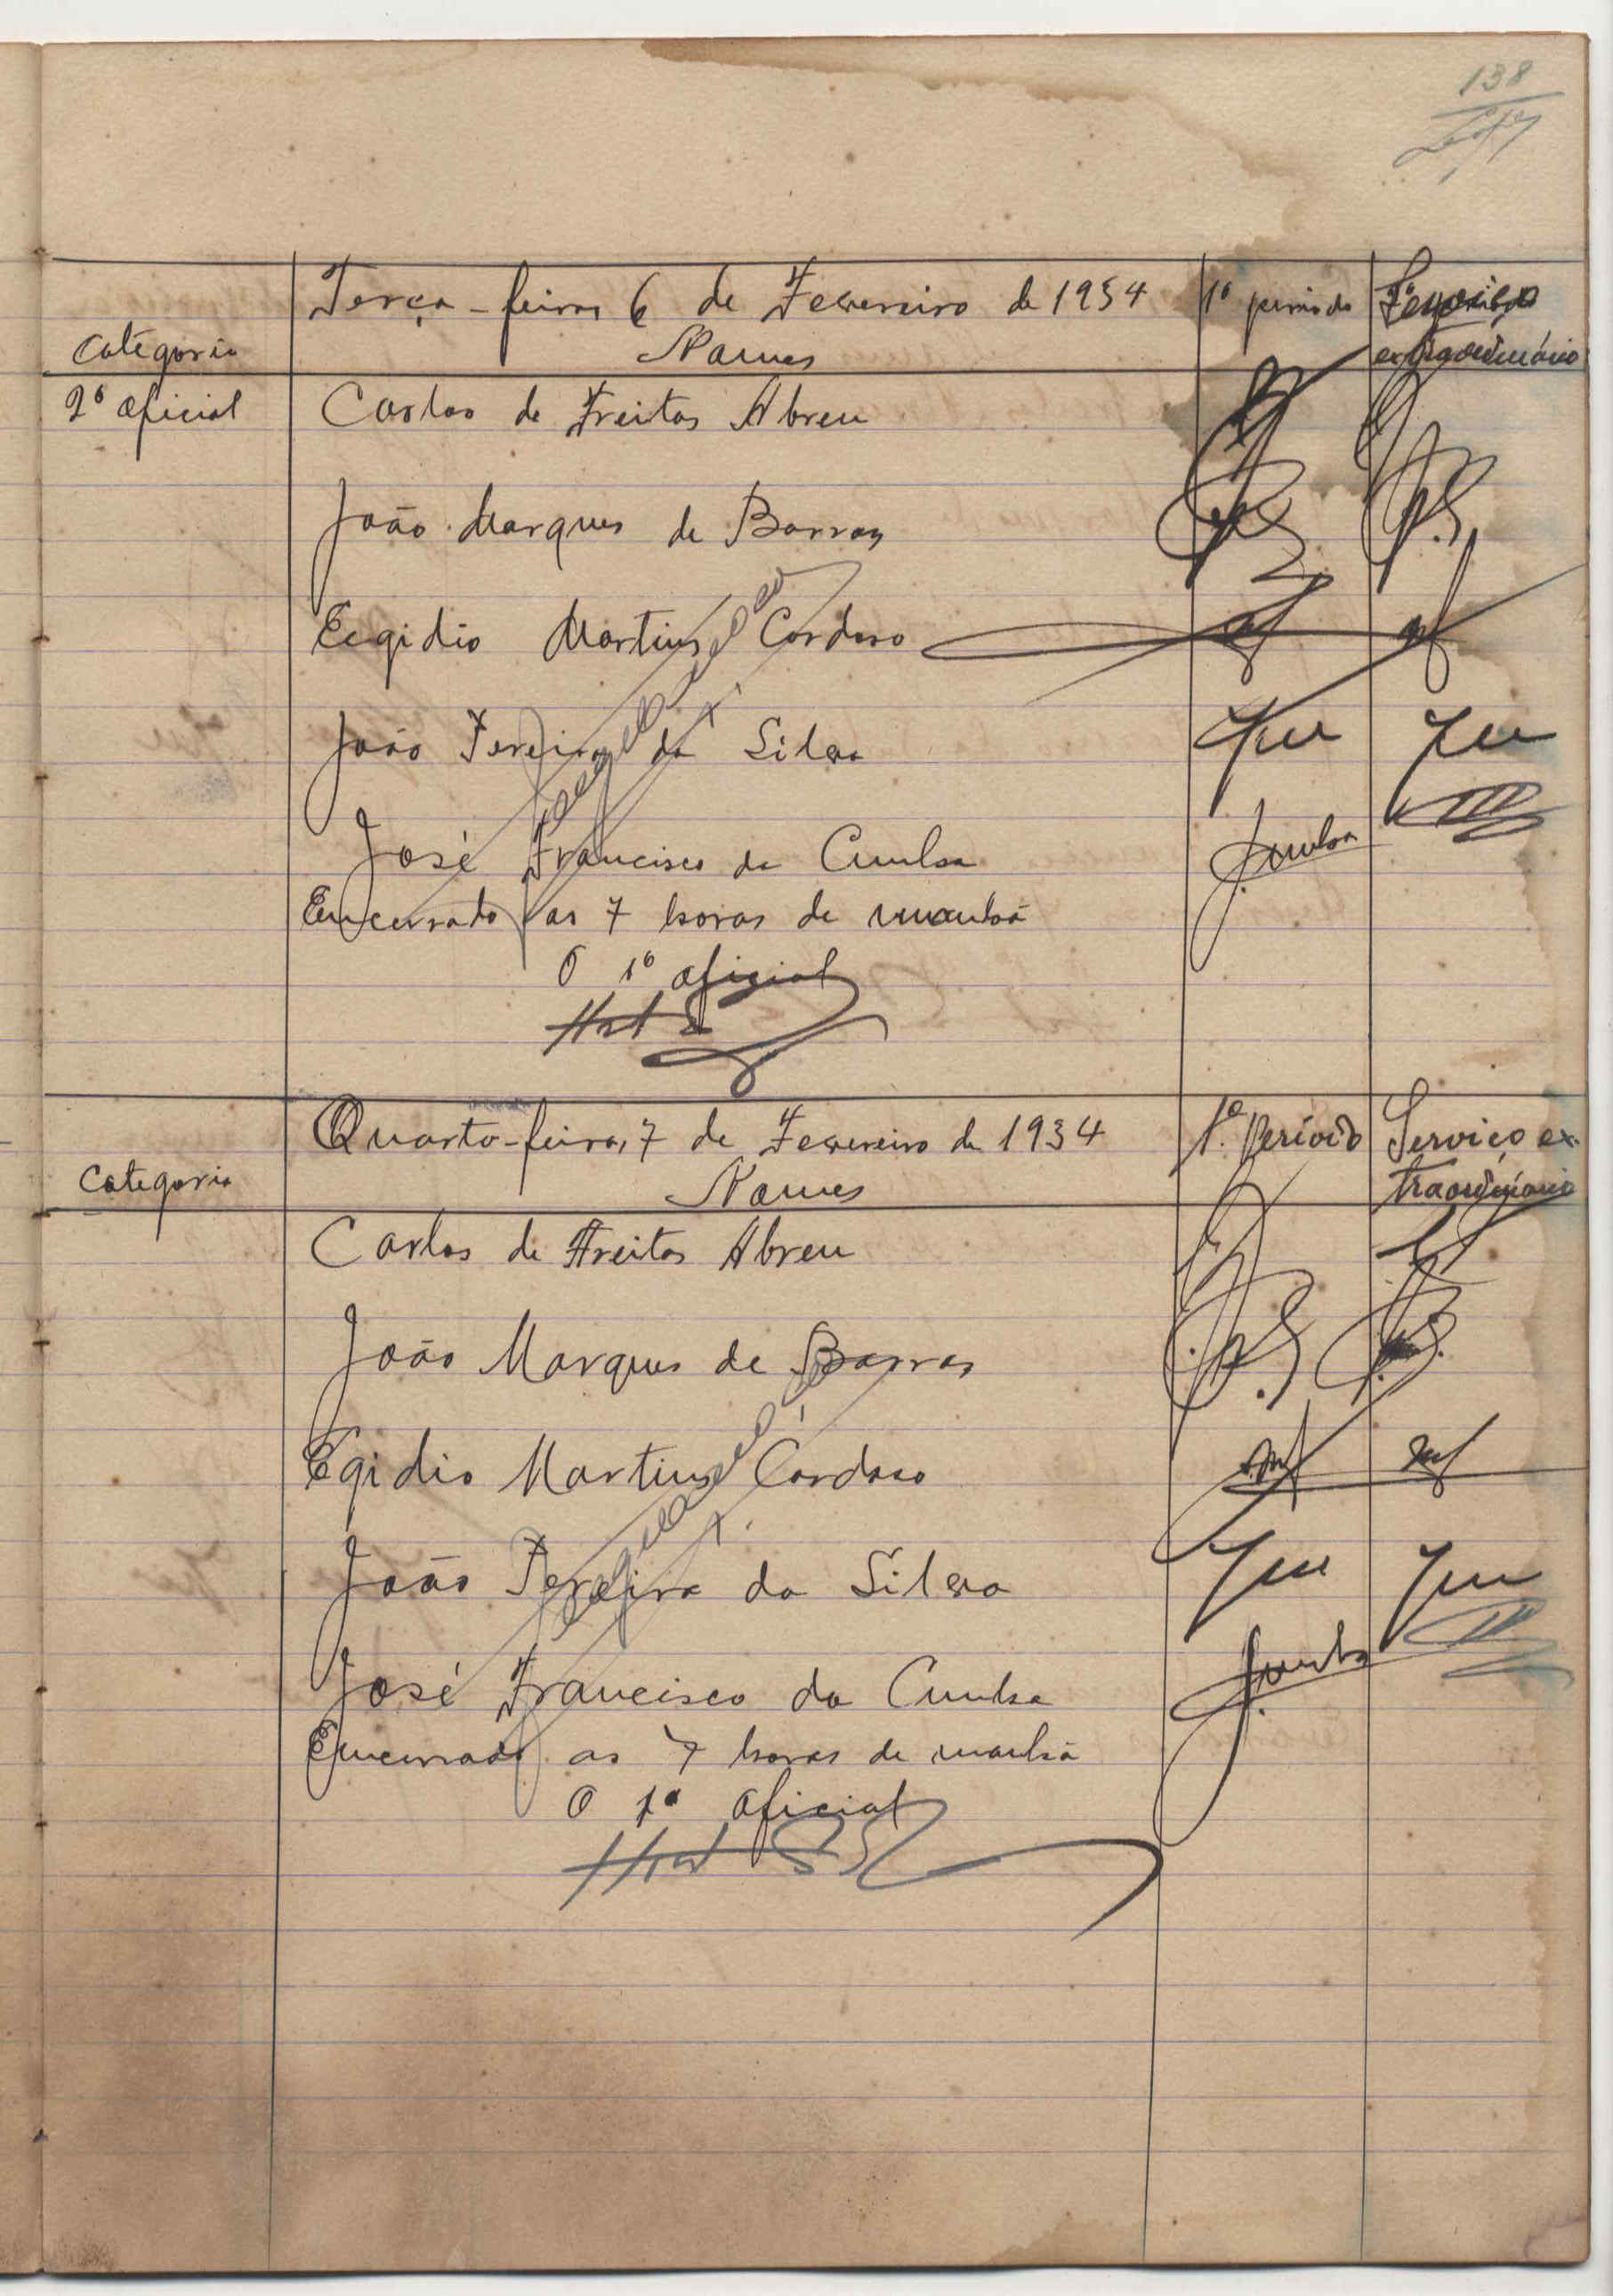 138
Terça-feira, 6 de Fevereiro de 1934 1º periodo Serviço
Categoria Nomes extraordinário
2º oficial Carlos de Freitas Abreu
João Marques de Barros
Eegidio Martins Cardoso
João Pereira da Silva
José Francisco da Cunha J. Cunha
Encerrado as 7 horas de manhã
O 1º oficial
Quarta-feira, 7 de Fevereiro de 1934 1º Período Serviço ex-
Categoria Nomes traordinário
Carlos de Freitas Abreu
João Marques de Barros
Egidio Martins Cardoso
João Pereira da Silva
José Francisco da Cunha J. Cunha
Encerrado as 7 horas de manhã
O 1º oficial